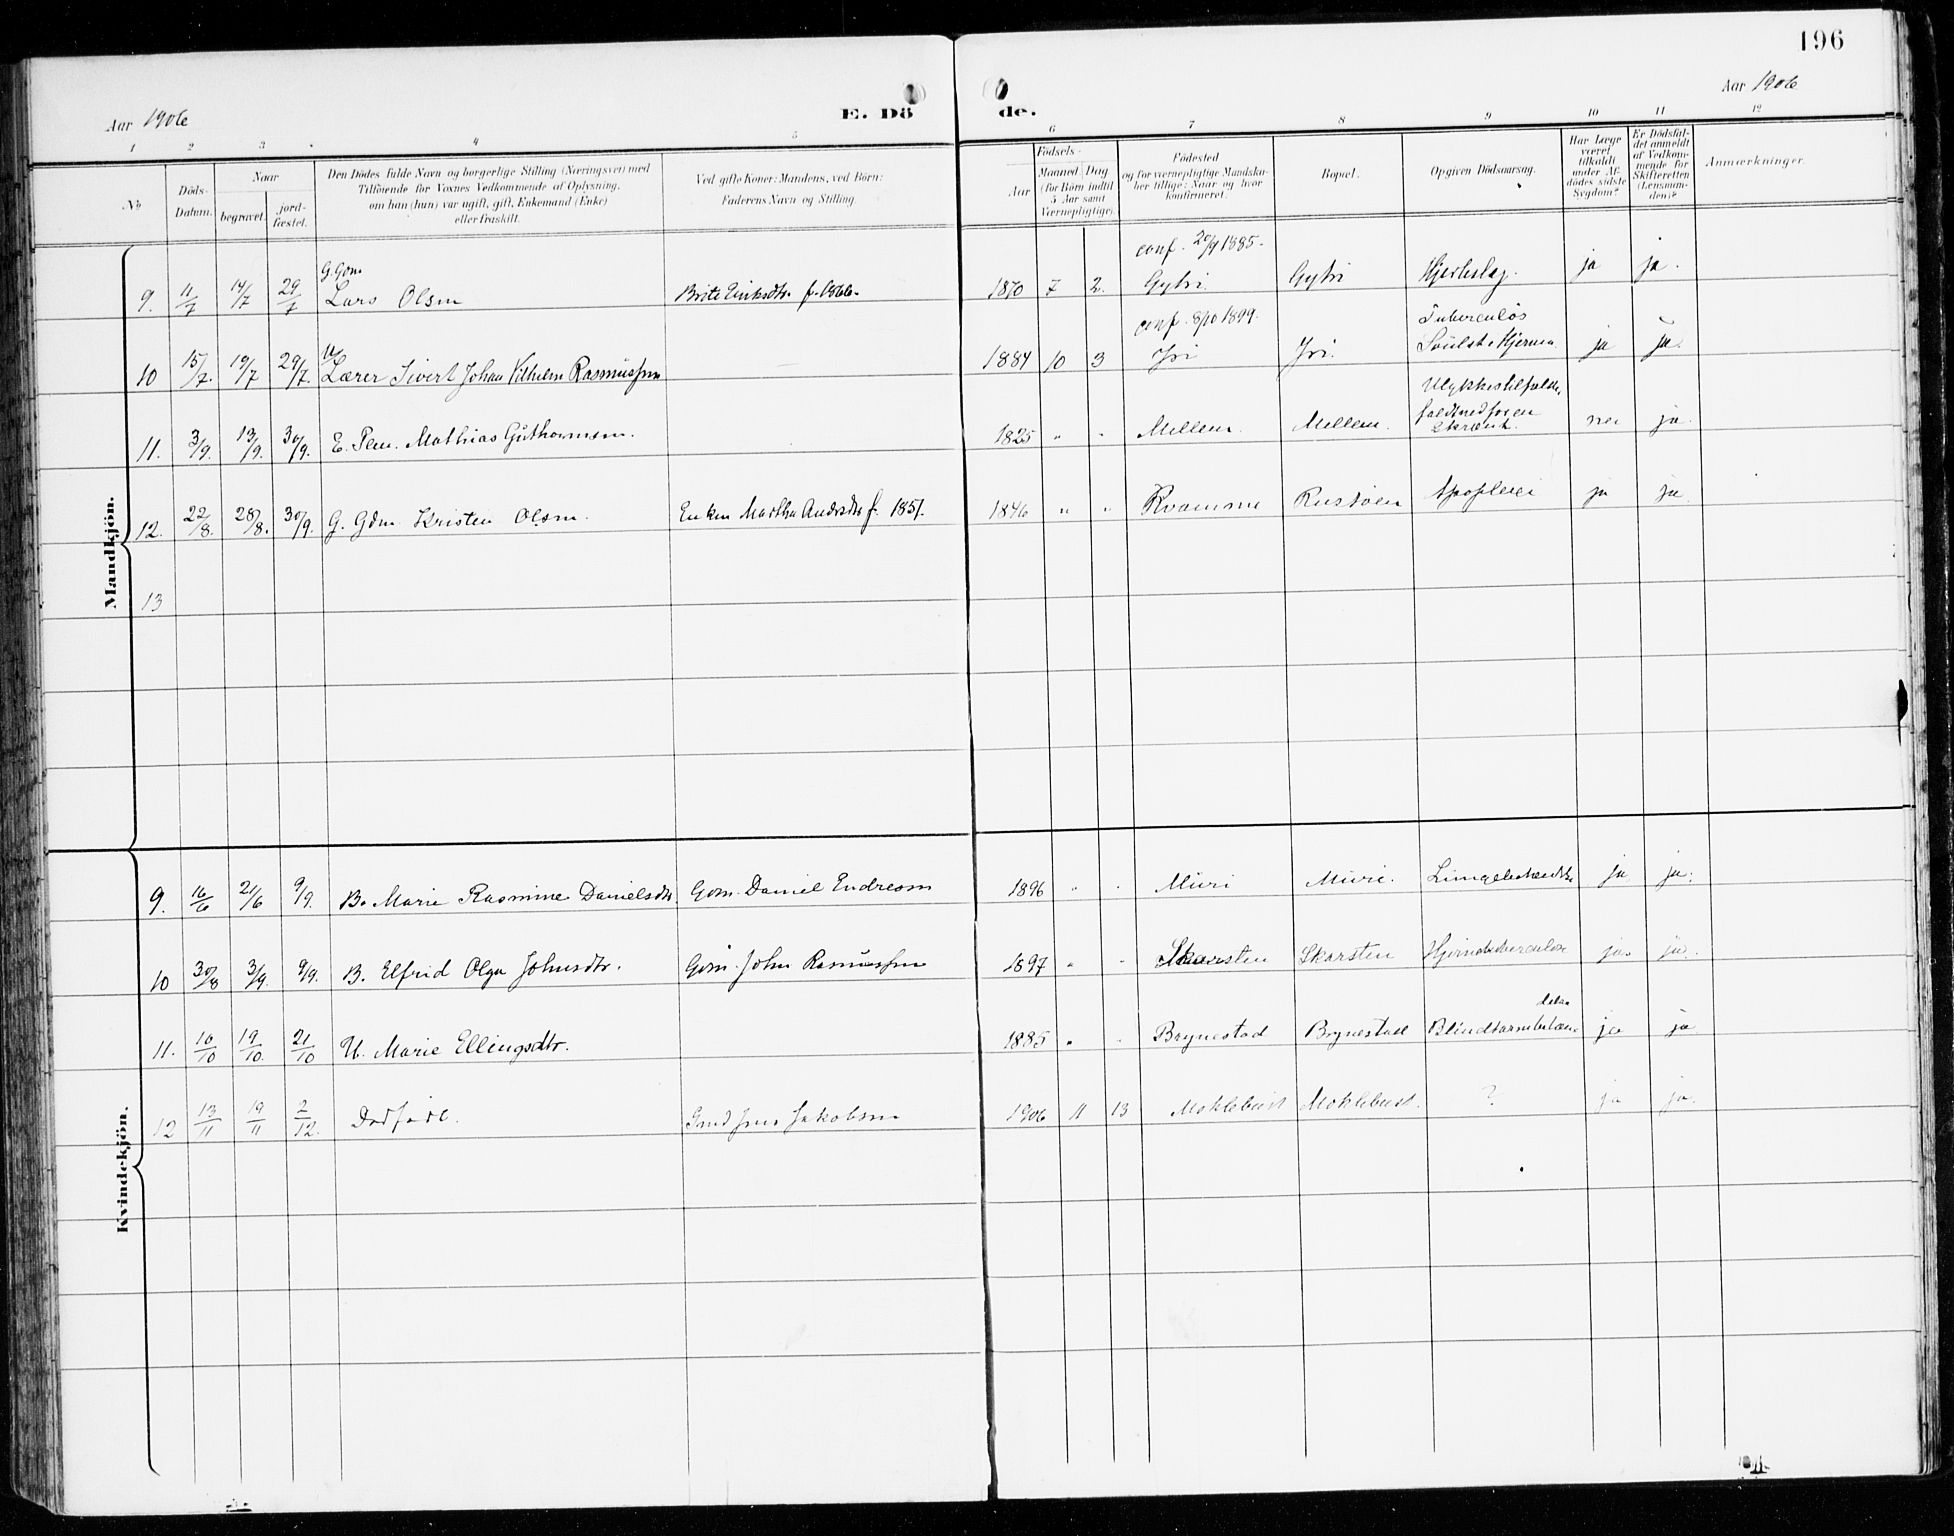 196
Aar 1906 E. Dö de. Aar 1906
1 2 3 4 5 6 7 8 9 10 11 12
No
Döds-Datum.
Naar
begravet.
jord-fæstet.
Den Dödes fulde Navn og borgerlige Stilling (Næringsvei) med
Tilföiende for Voxnes Vedkommende af Oplysning,
om han (hun) var ugift, gift, Enkemand (Enke)
eller fraskilt.
Ved gifte Koner: Mandens, ved Börn:
Faderens Navn og Stilling.
Födsels-
Aar
Maaned
Dag
(for Börn indtil
5 Aar samt
Værnepligtige).
Födested
og for værnepligtige Mandska-
ber tillige: Naar og hvor
konfirmeret.
Bopæl.
Opgiven Dödsaarsag.
Har Læge
været
tilkaldt
under Af-
dödes sidste
Sygdom?
Er Dödsfal-
det anmeldt
af Vedkom-
mende for
Skifteretten
(Lensman-
den)?
Anmærkninger.
Mandkjön.
conf. 20/9 1885.
9. 11/7 14/7 29/7 G. Gdm Lars Olsen Brite Eriksdtr. f. 1866. 1870 7 2. Gytri. Gytri Hjerteslag. ja ja.
conf. 8/10 1899. Tuberculös
10 15/7. 19/7 29/7. U Lærer Sivert Johan Vilhelm Rasmussen 1884 10 3 Iri Iri. Svulst i Hjernen ja ja.
Ulykkestilfælde,
faldt ned for en
11. 3/9. 13/9. 30/9. E. Mathias Guthormsen. 1825 " " Mellem. Mellem. Skrænt. nei ja.
12. 22/8. 28/8. 30/9. G. Gdm Kristen Olsen. Enken Martha Andrsdtr f. 1851. 1846 " " Kvamme Rustøen Apoplexi ja ja
13
Kvindekjön.
9. 16/6 21/6 9/9. B. Marie Rasmine Danielsdtr. Gdm. Daniel Endresen 1896 " " Muri Muri. ja ja.
10 30/8 3/9. 9/9. B. Elfrid Olga Johnsdtr. Gdm. John Rasmussen 1897 " " Skarsten Skarsten Hjernetuberculose ja. ja.
11. 16/10 19/10. 21/10 U. Marie Ellingsdtr. 1885 " " Brynestad Brynestad Blindtarmbetændelse ja ja
12 13/11 19/11 2/12. Dødfødt. Gmd Jens Jakobsen 1906 11 13 Moklebust Moklebust. ? ja ja.